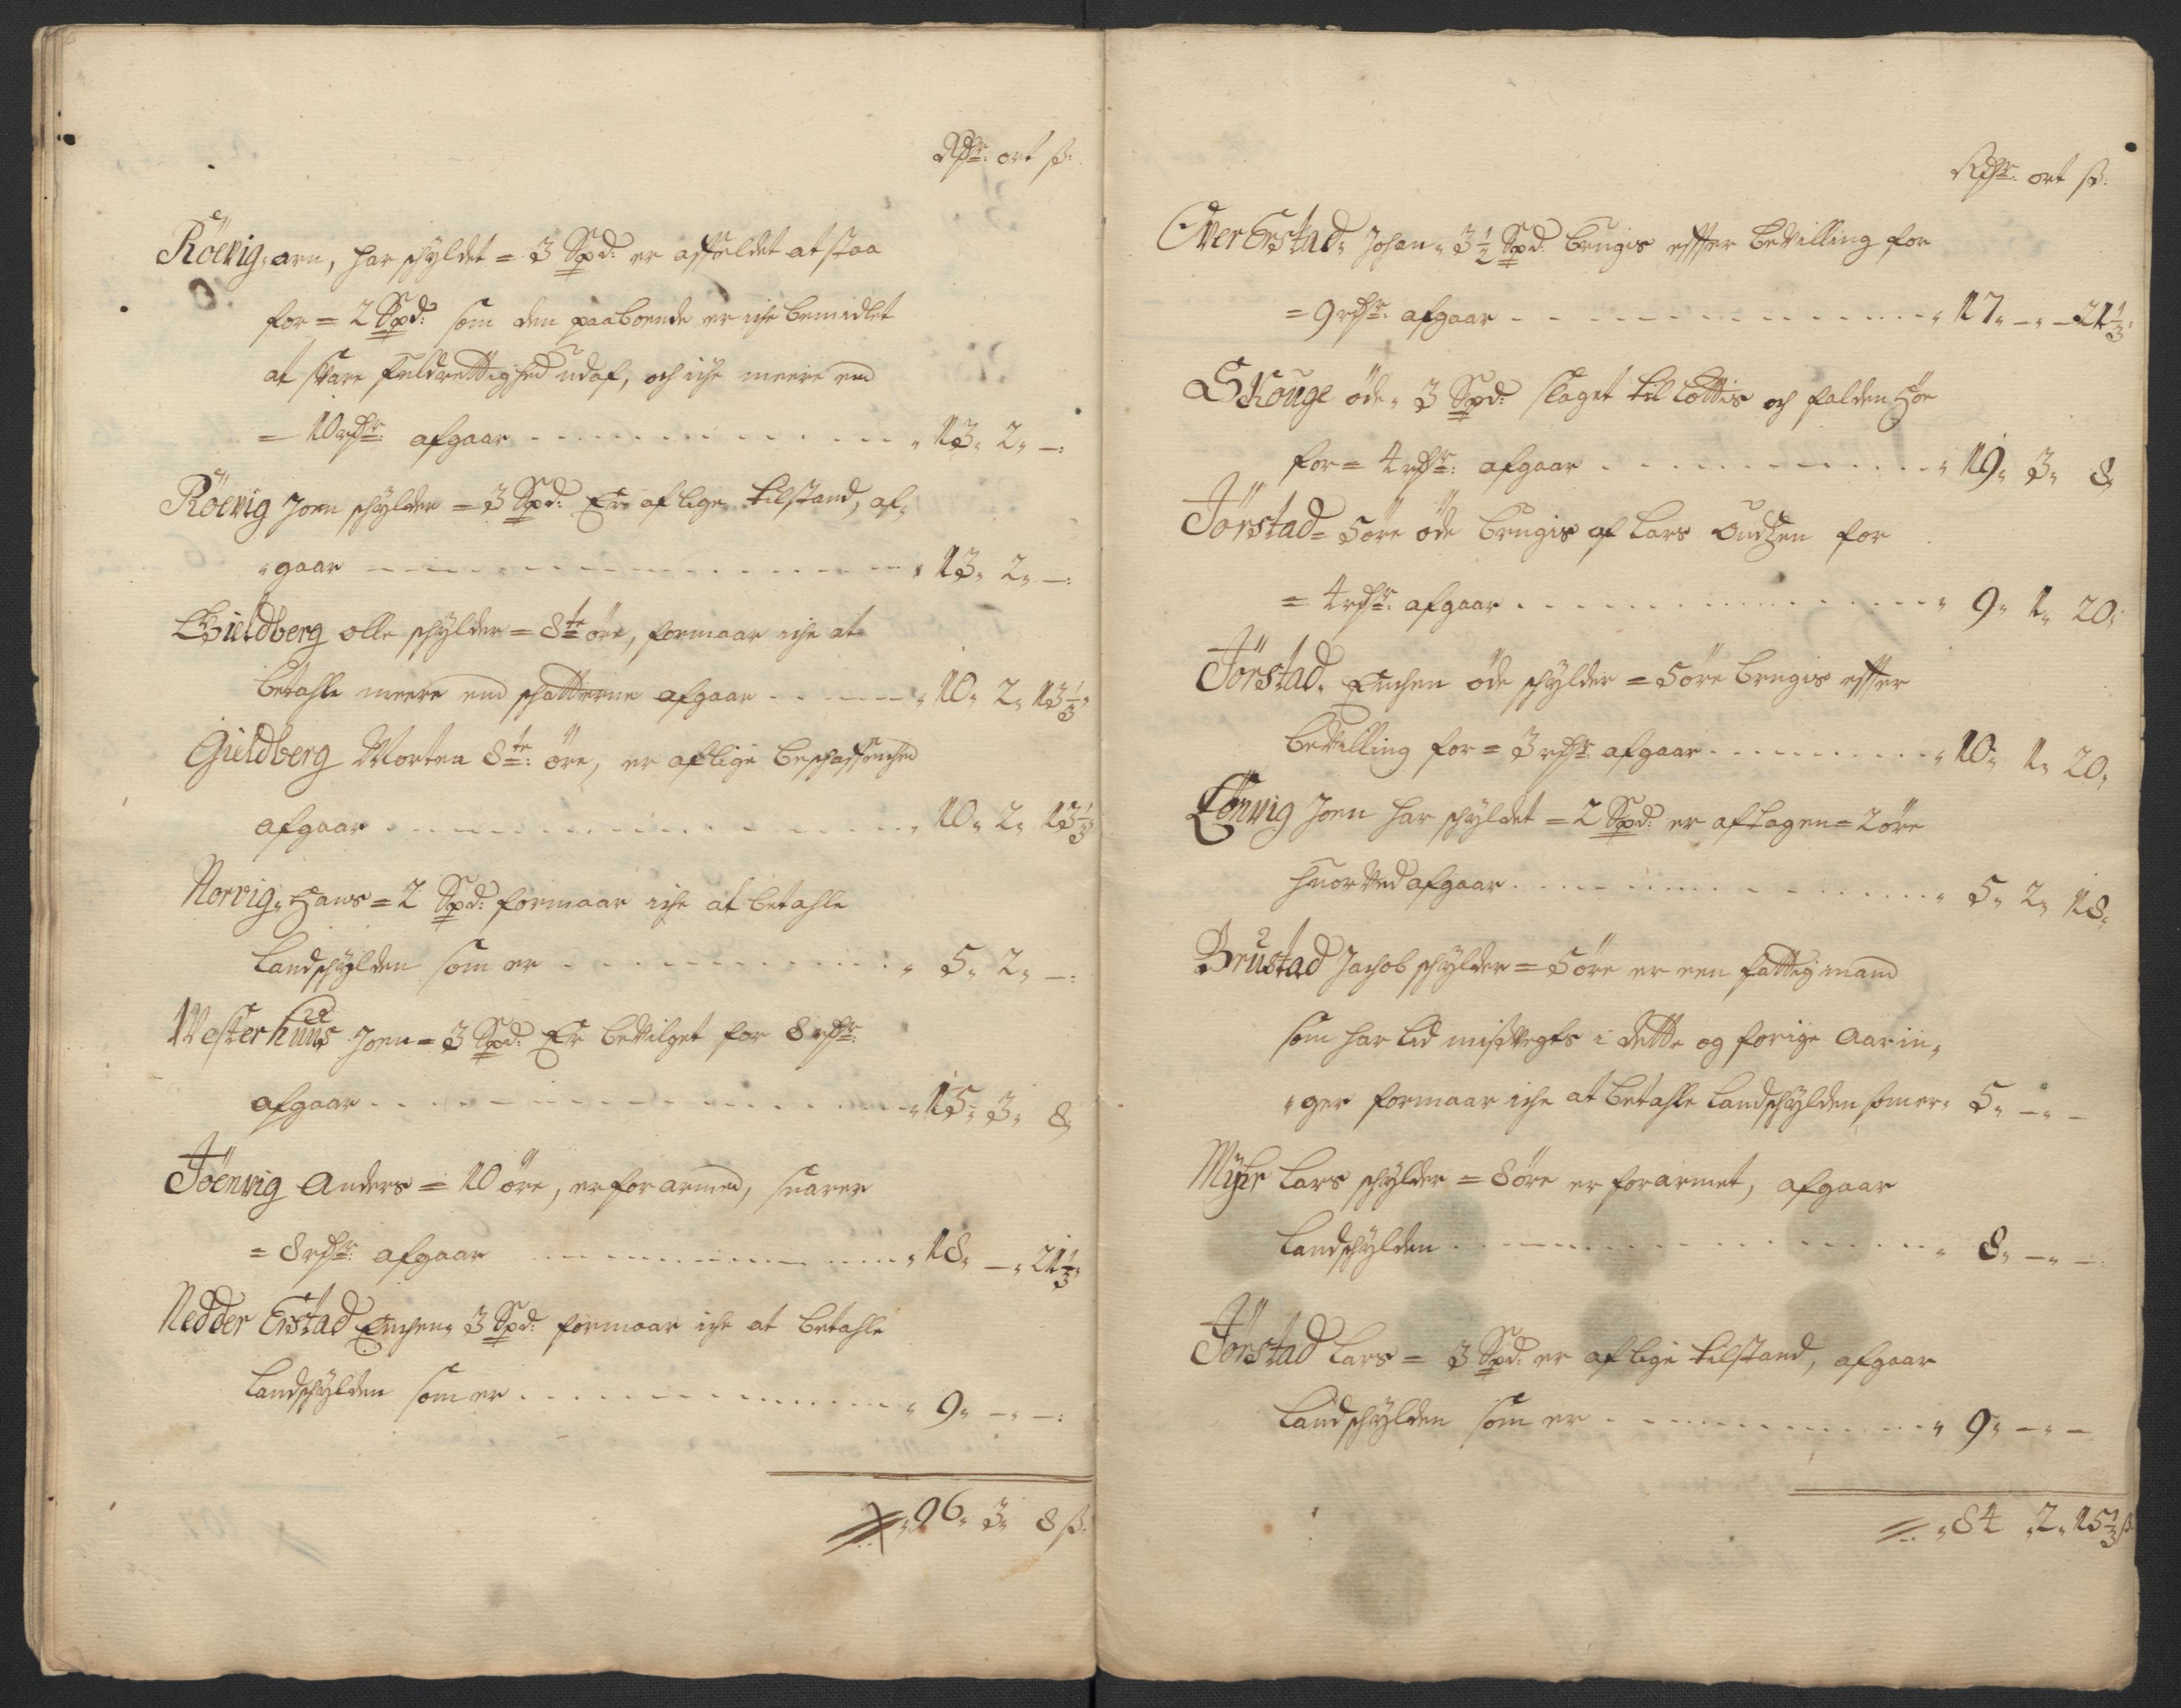 Rdlr: ort ß:
Röevig, arn, har schyldet = 3 Spd: er affeldet at staa
for = 2 Spd: som den paaboende er iche bemidlet
at svare fuldrettighed udaf, och iche meere end
= 10 rdlr: afgaar - - - 13, 2, -:
Röevig Joen schylder = 3 Spd: Er af lige tilstand, af,
,gaar - - - 13, 2, -:
Gieldberg olle schylder = 8te öre, formaar iche at
betahle meere end schatterne afgaar - - - 10, 2, 13 1/3,
Gieldberg Morten 8te: öre, er af lige beschaffenhed
afgaar - - - 10, 2, 13 1/3,
Norvig, Hans = 2 Spd: formaar iche at betahle
Landschylden som er - - - 5, 2, -:
Westerhuus Joen = 3 Spd: Er bevilget for 8 rdlr:
afgaar - - - 15, 3, 8,
Föenvig Anders = 10 öre, er forarmed, svarer
= 8 rdlr: afgaar - - - 18, -, 21 1/3,
Nedder Erstad Enchen, 3 Spd: formaar iche at betahle
Landschylden som er - - - 9, -, -:
96, 3, 8 ß:
Rdlr: ort ß:
Over Erstad, Johan, 3 1/2 Spd: brugis effter bevilling for
= 9 rdlr: afgaar - - - 17, -, - 21 1/3,
Skouge öde, 3 Spd: slaget til Lottis och falden Höe
for = 4 rdlr: afgaar - - - 19, 3, 8,
Förstad = 5 öre öde brugis af Lars for
= 4 rdlr: afgaar - - - 9, 1, 20,
Förstad, Enchen öde schylder = 5 öre brugis effter
bevilling for = 3 rdlr: afgaar - - - 10, 1, 20,
Joen har schyldet = 2 Spd: er aftagen = 2 öre
huorved afgaar - - - 5, 2, 18,
Brustad Jachob schylder = 5 öre er een fattig mand
som har lid misvegst i dette og forige Aarin,
,ger formaar iche at betahle Landschylden som er, 5, -, -
Myhr Lars schylder = 8 öre er forarmet, afgaar
Landschylden - - - 8, -, -:
Förstad Lars = 3 Spd: er af lige tilstand, afgaar
Landschylden som er - - - 9, -, -
84, 2, 15 1/3 ß: